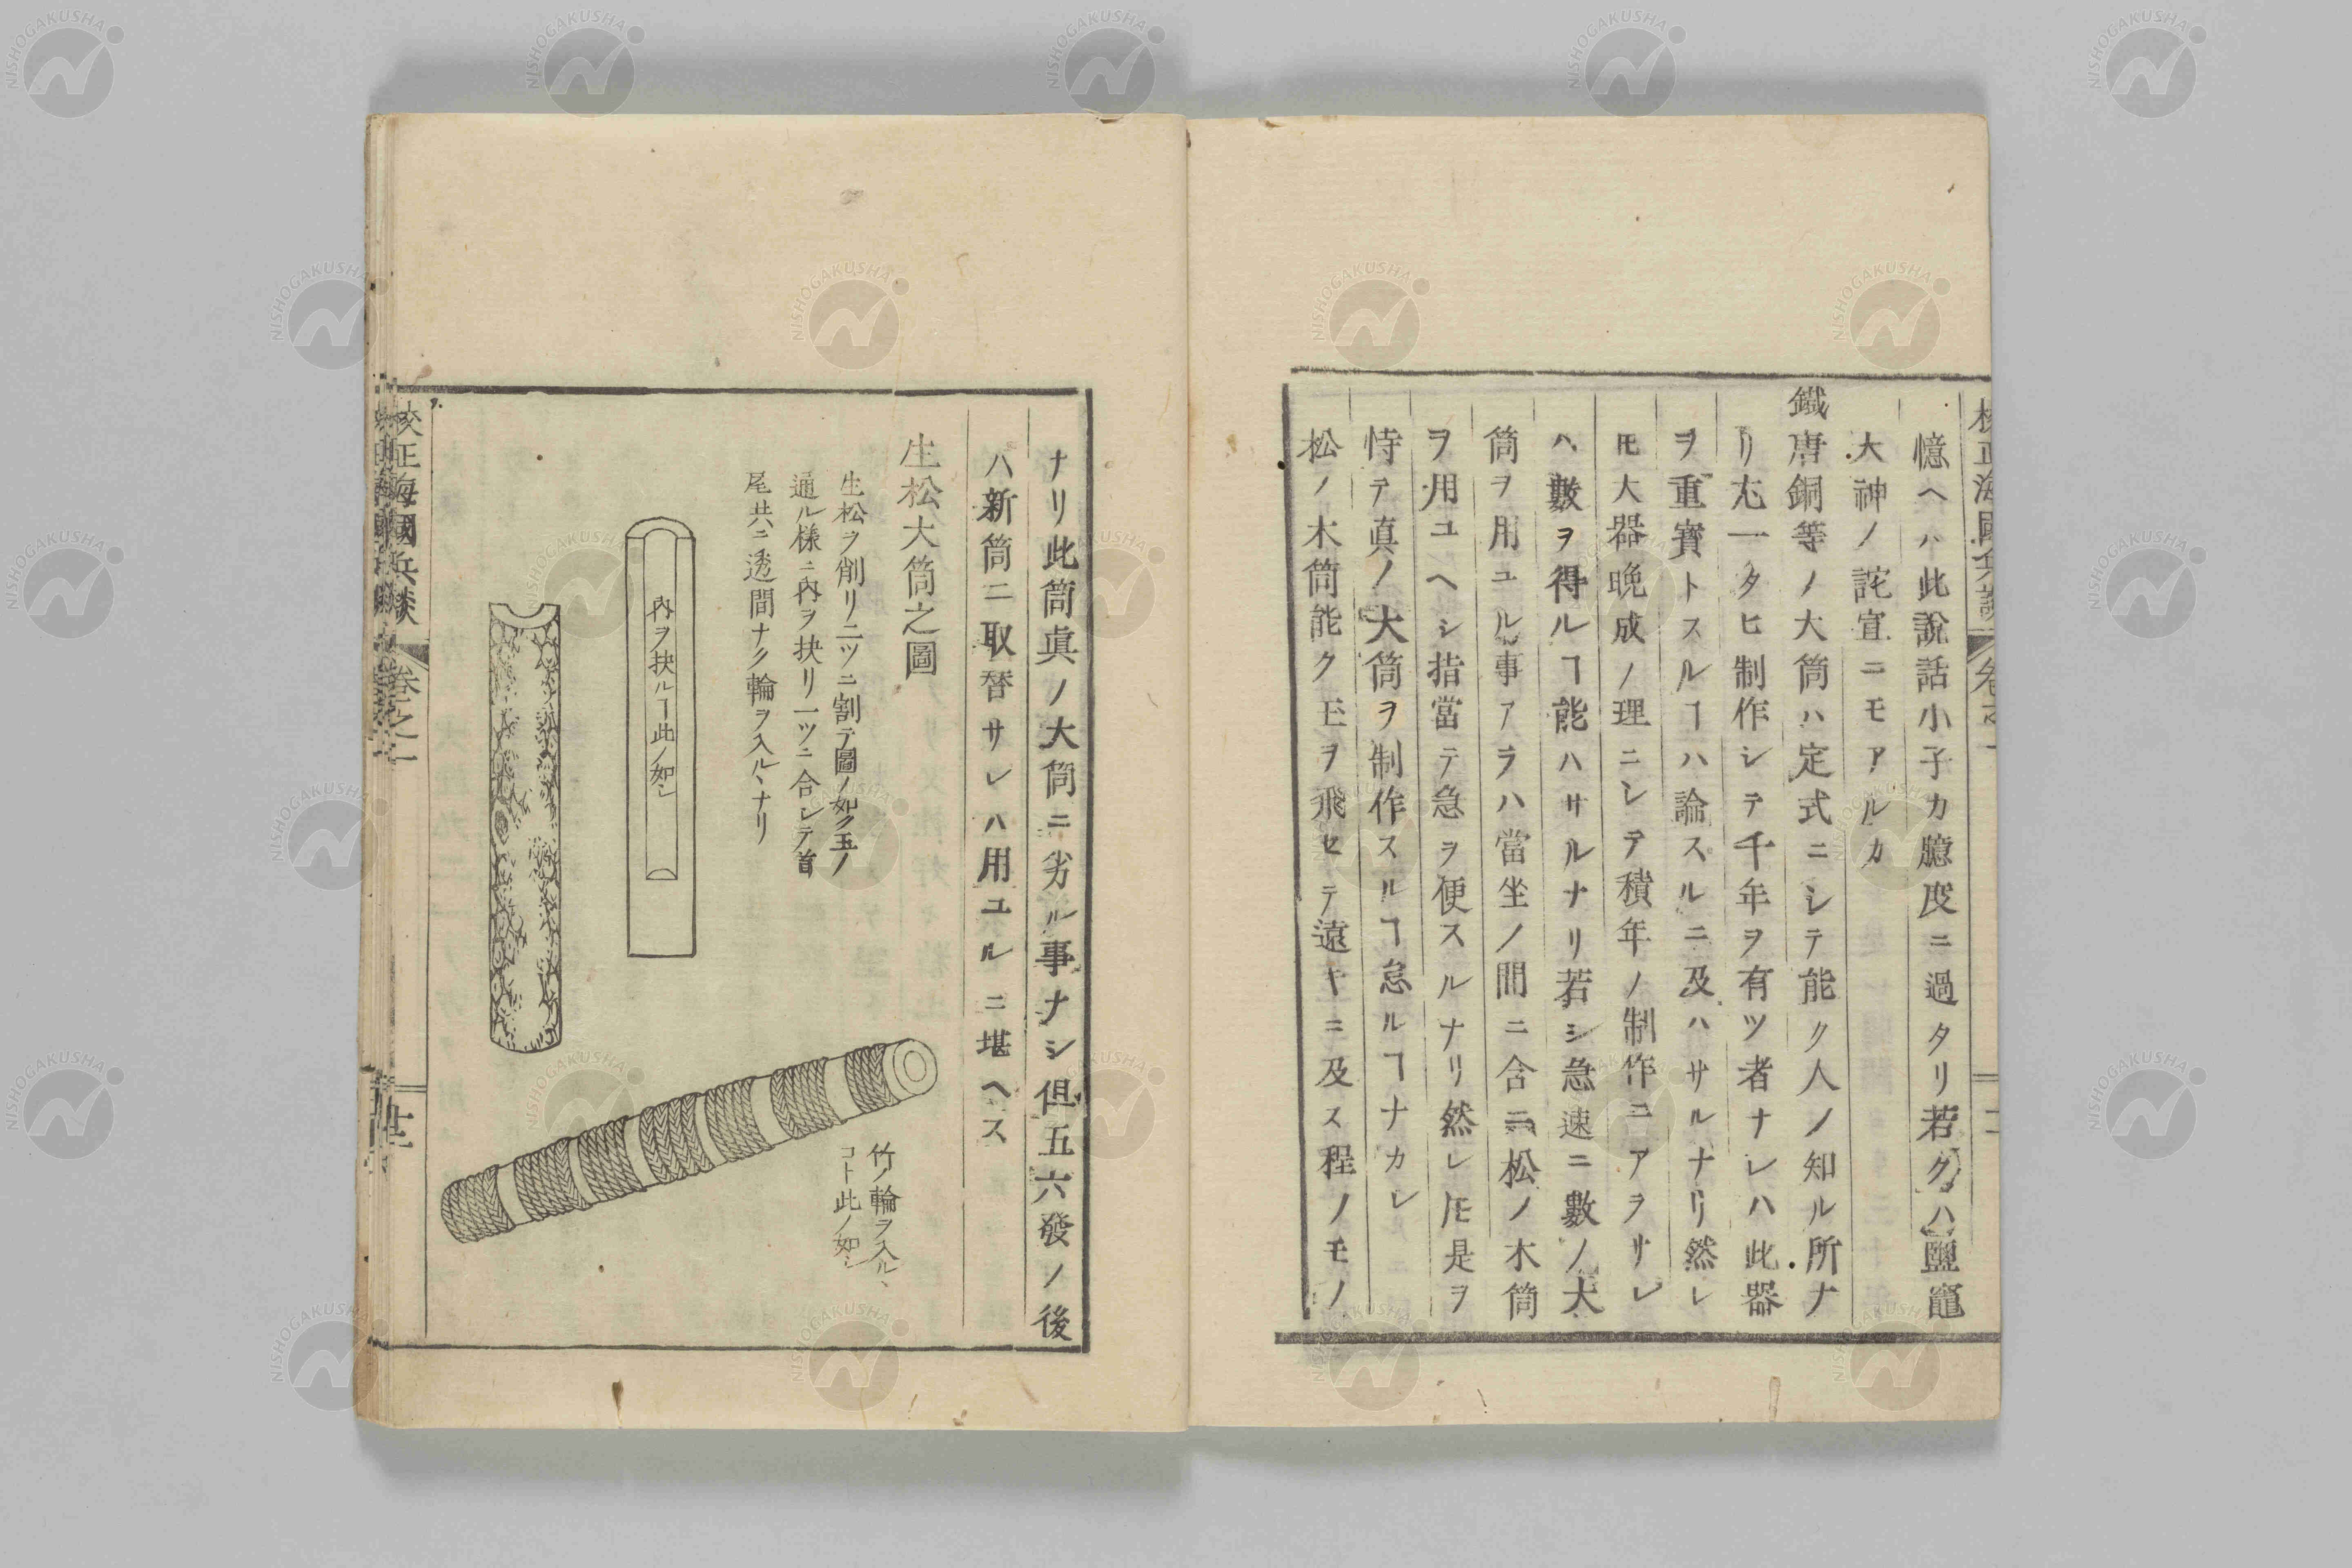 憶ヘハ此說話小子カ臆度ニ過タリ若クハ鹽竈
大神ノ詫宣ニモアルカ
鐵唐銅等ノ大筒ハ定式ニシテ能ク人ノ知ル所ナ
リ尤一タヒ制作シテ千年ヲ有ツ者ナレハ此器
ヲ重寶トスルヿハ論スルニ及ハサルナリ然レ
𪜈大器晩成ノ理ニシテ積年ノ制作ニアラサレ
ハ數ヲ得ルヿ能ハサルナリ若シ急速ニ數ノ大
筒ヲ用ユル事アラハ當坐ノ間ニ合ニ松ノ木筒
ヲ用ユヘシ指當テ急ヲ便スルナリ然レ𪜈是ヲ
恃テ真ノ大筒ヲ制作スルヿ怠ルヿナカレ
松ノ木筒能ク玉ヲ飛セテ遠キニ及ス程ノモノ
ナリ此筒眞ノ大筒ニ劣ル事ナシ但五六發ノ後
ハ新筒ニ取替サレハ用ユルニ堪ヘス
生松大筒之圖
生松ヲ削リ二ツニ割テ圖ノ如ク玉ノ
通ル樣ニ內ヲ抉リ一ツニ合シテ首
尾共ニ透間ナク輪ヲ入ルヽナリ
內ヲ抉ルヿ此ノ如シ
竹ノ輪ヲ入ルヽ
コト此ノ如シ
校正海國兵談
卷之一
NISHOGAKUSHA